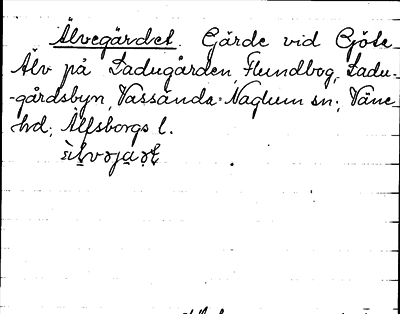 Älvegärdet. Gärde vid Göta
Älv på Ladugården, Flundbog, Ladu-
-gårdsbyn, Vassända-Naglum sn; Väne
hd; Älfsborgs l.